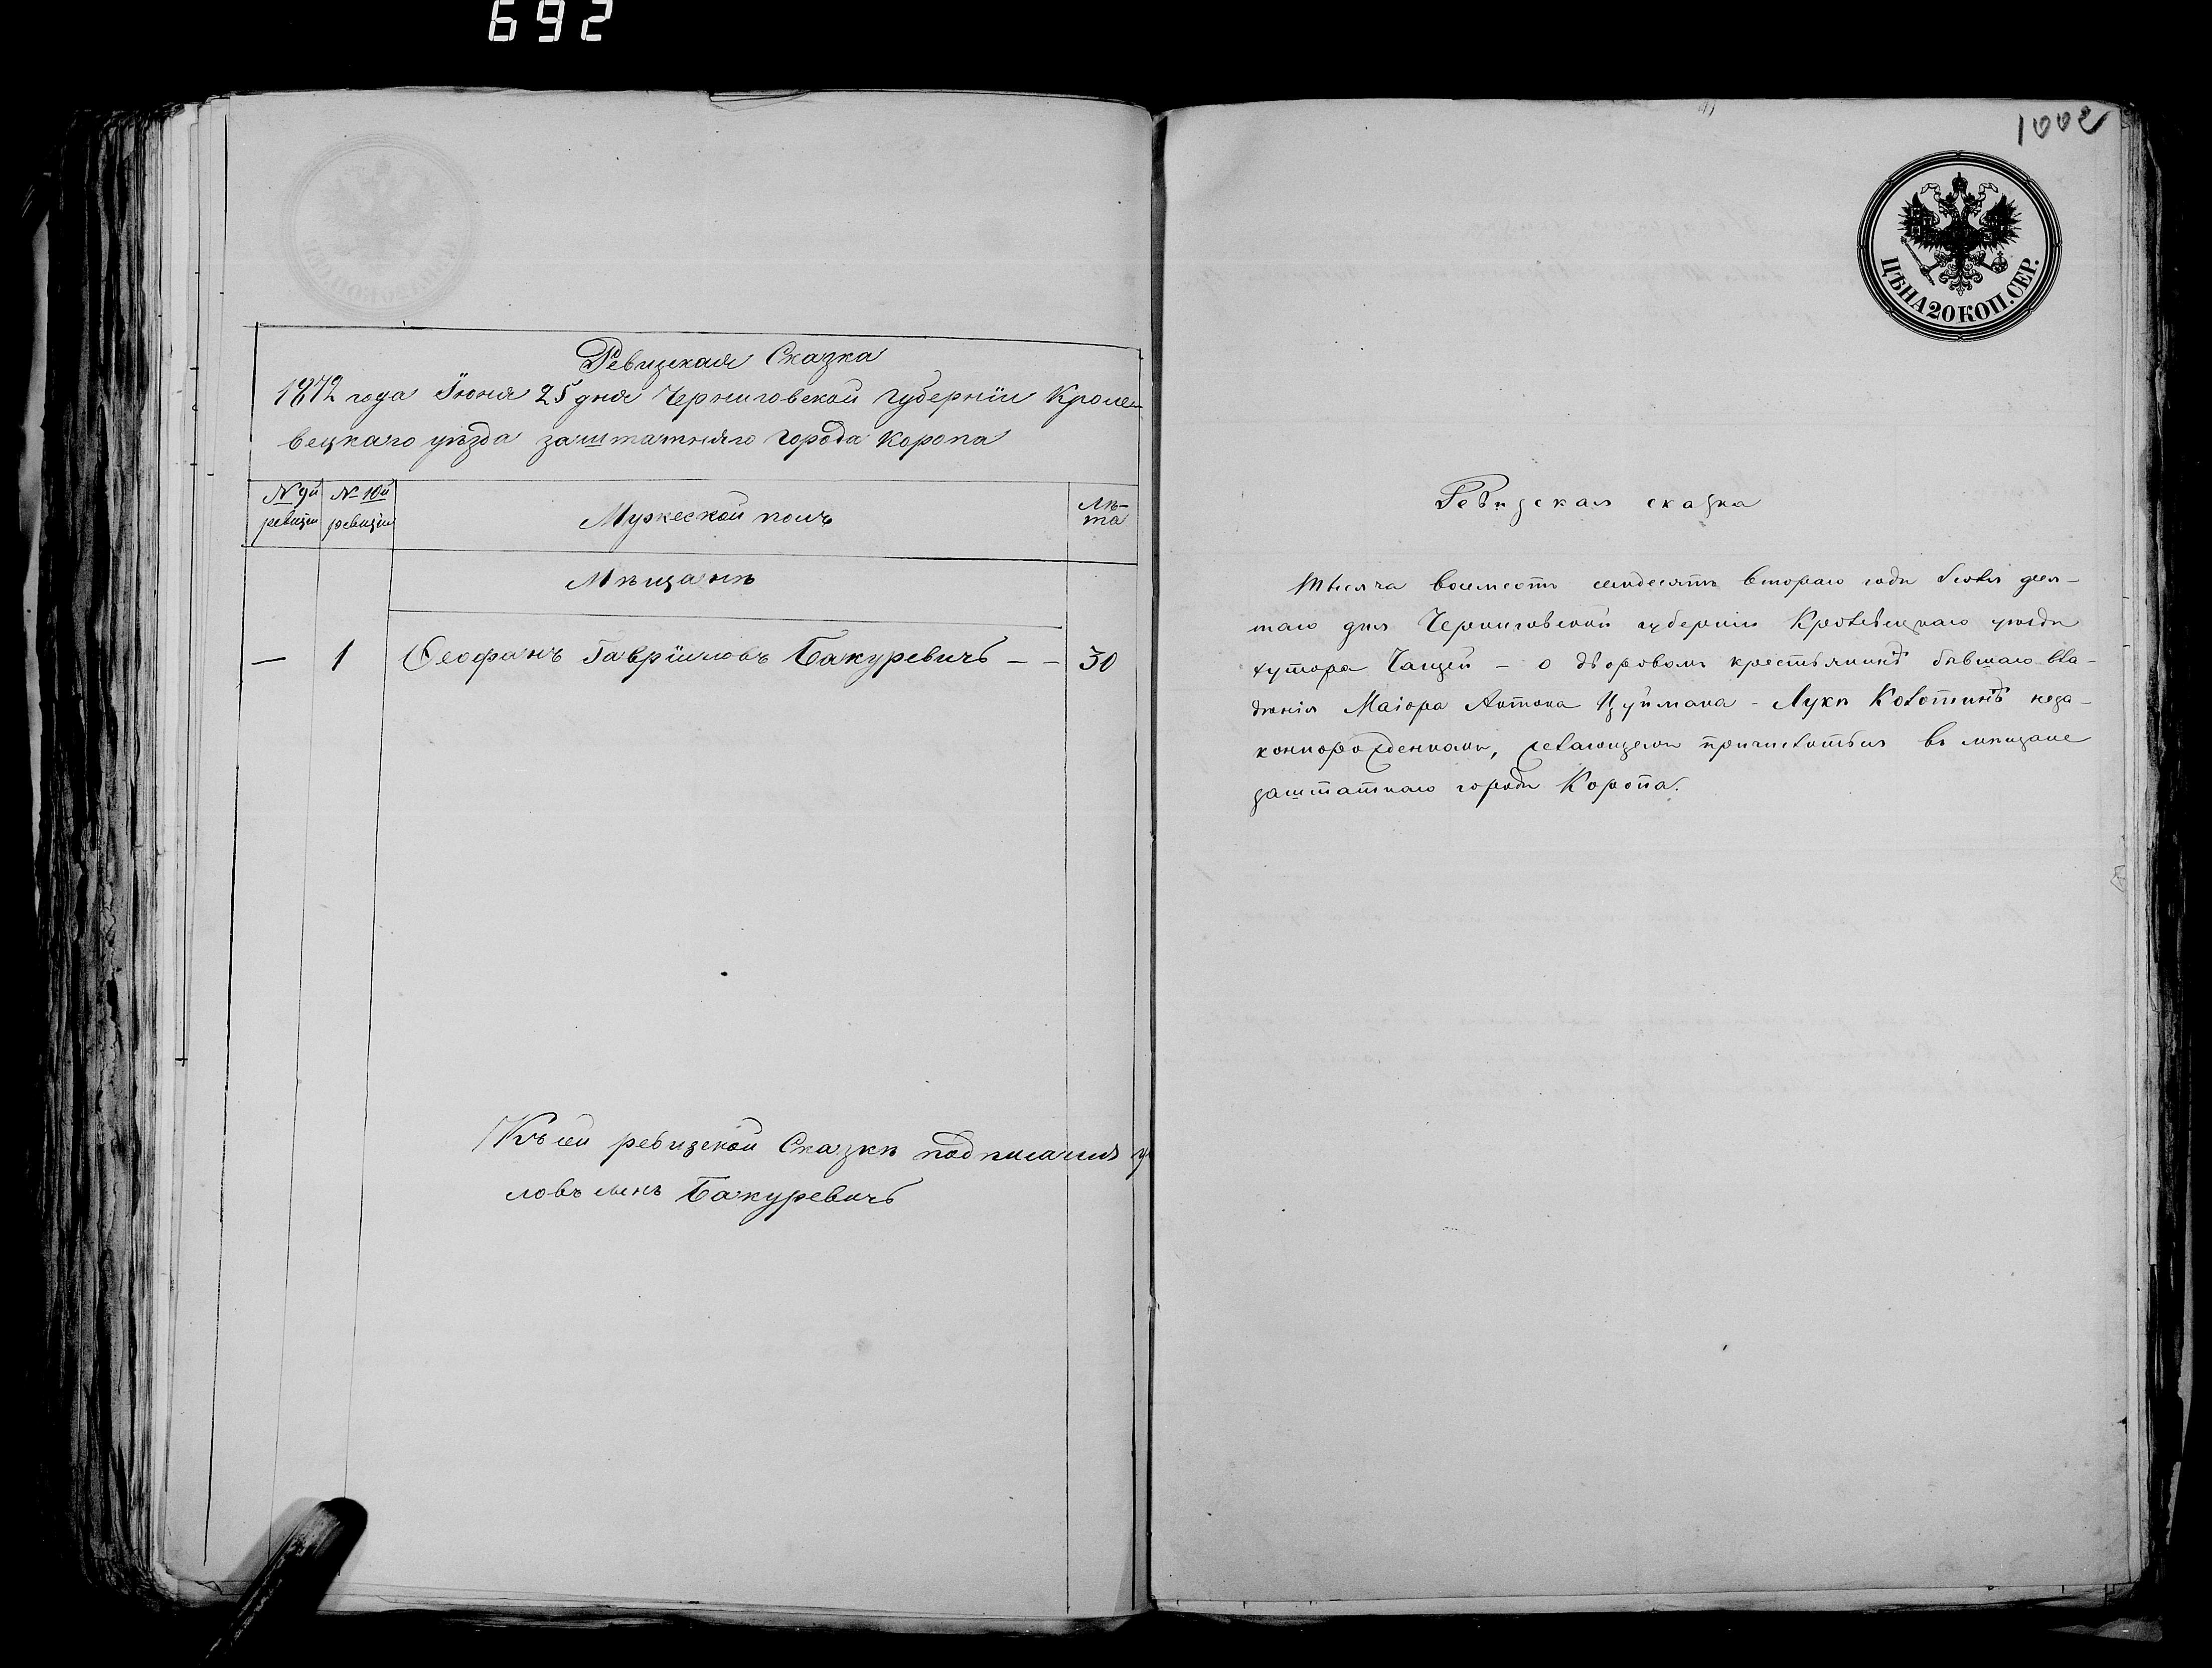 692
Ревизская Сказка
1872 года Іюня 25 дня Черниговской губерніи Кроле-
вецкаго уѣзда заштатняго города Коропа
№ 9й ревизіи
№ 10й ревизіи
Мужеской полъ
Лѣ-
та
Мѣщанъ
— 1 Ѳеофанъ Гавріиловъ Бакуревичъ - - 30
Къ сей ревизской Сказкѣ подписался
Бакуревичъ
1002
ЦѢНА 20 КОП. СЕР.
Ревизская сказка
Тысяча восемсотъ семдесятъ втораго года Іюля деся-
таго дня Черниговской губерніи Кролевецкаго уѣзда
хутора Чащей - о дворовомъ крестьянинѣ бывшаго вла-
дѣнія Маіора Антона - Лукѣ Колотинѣ неза-
коннорожденномъ, желающемъ причислиться въ мѣщане
заштатнаго города Коропа.